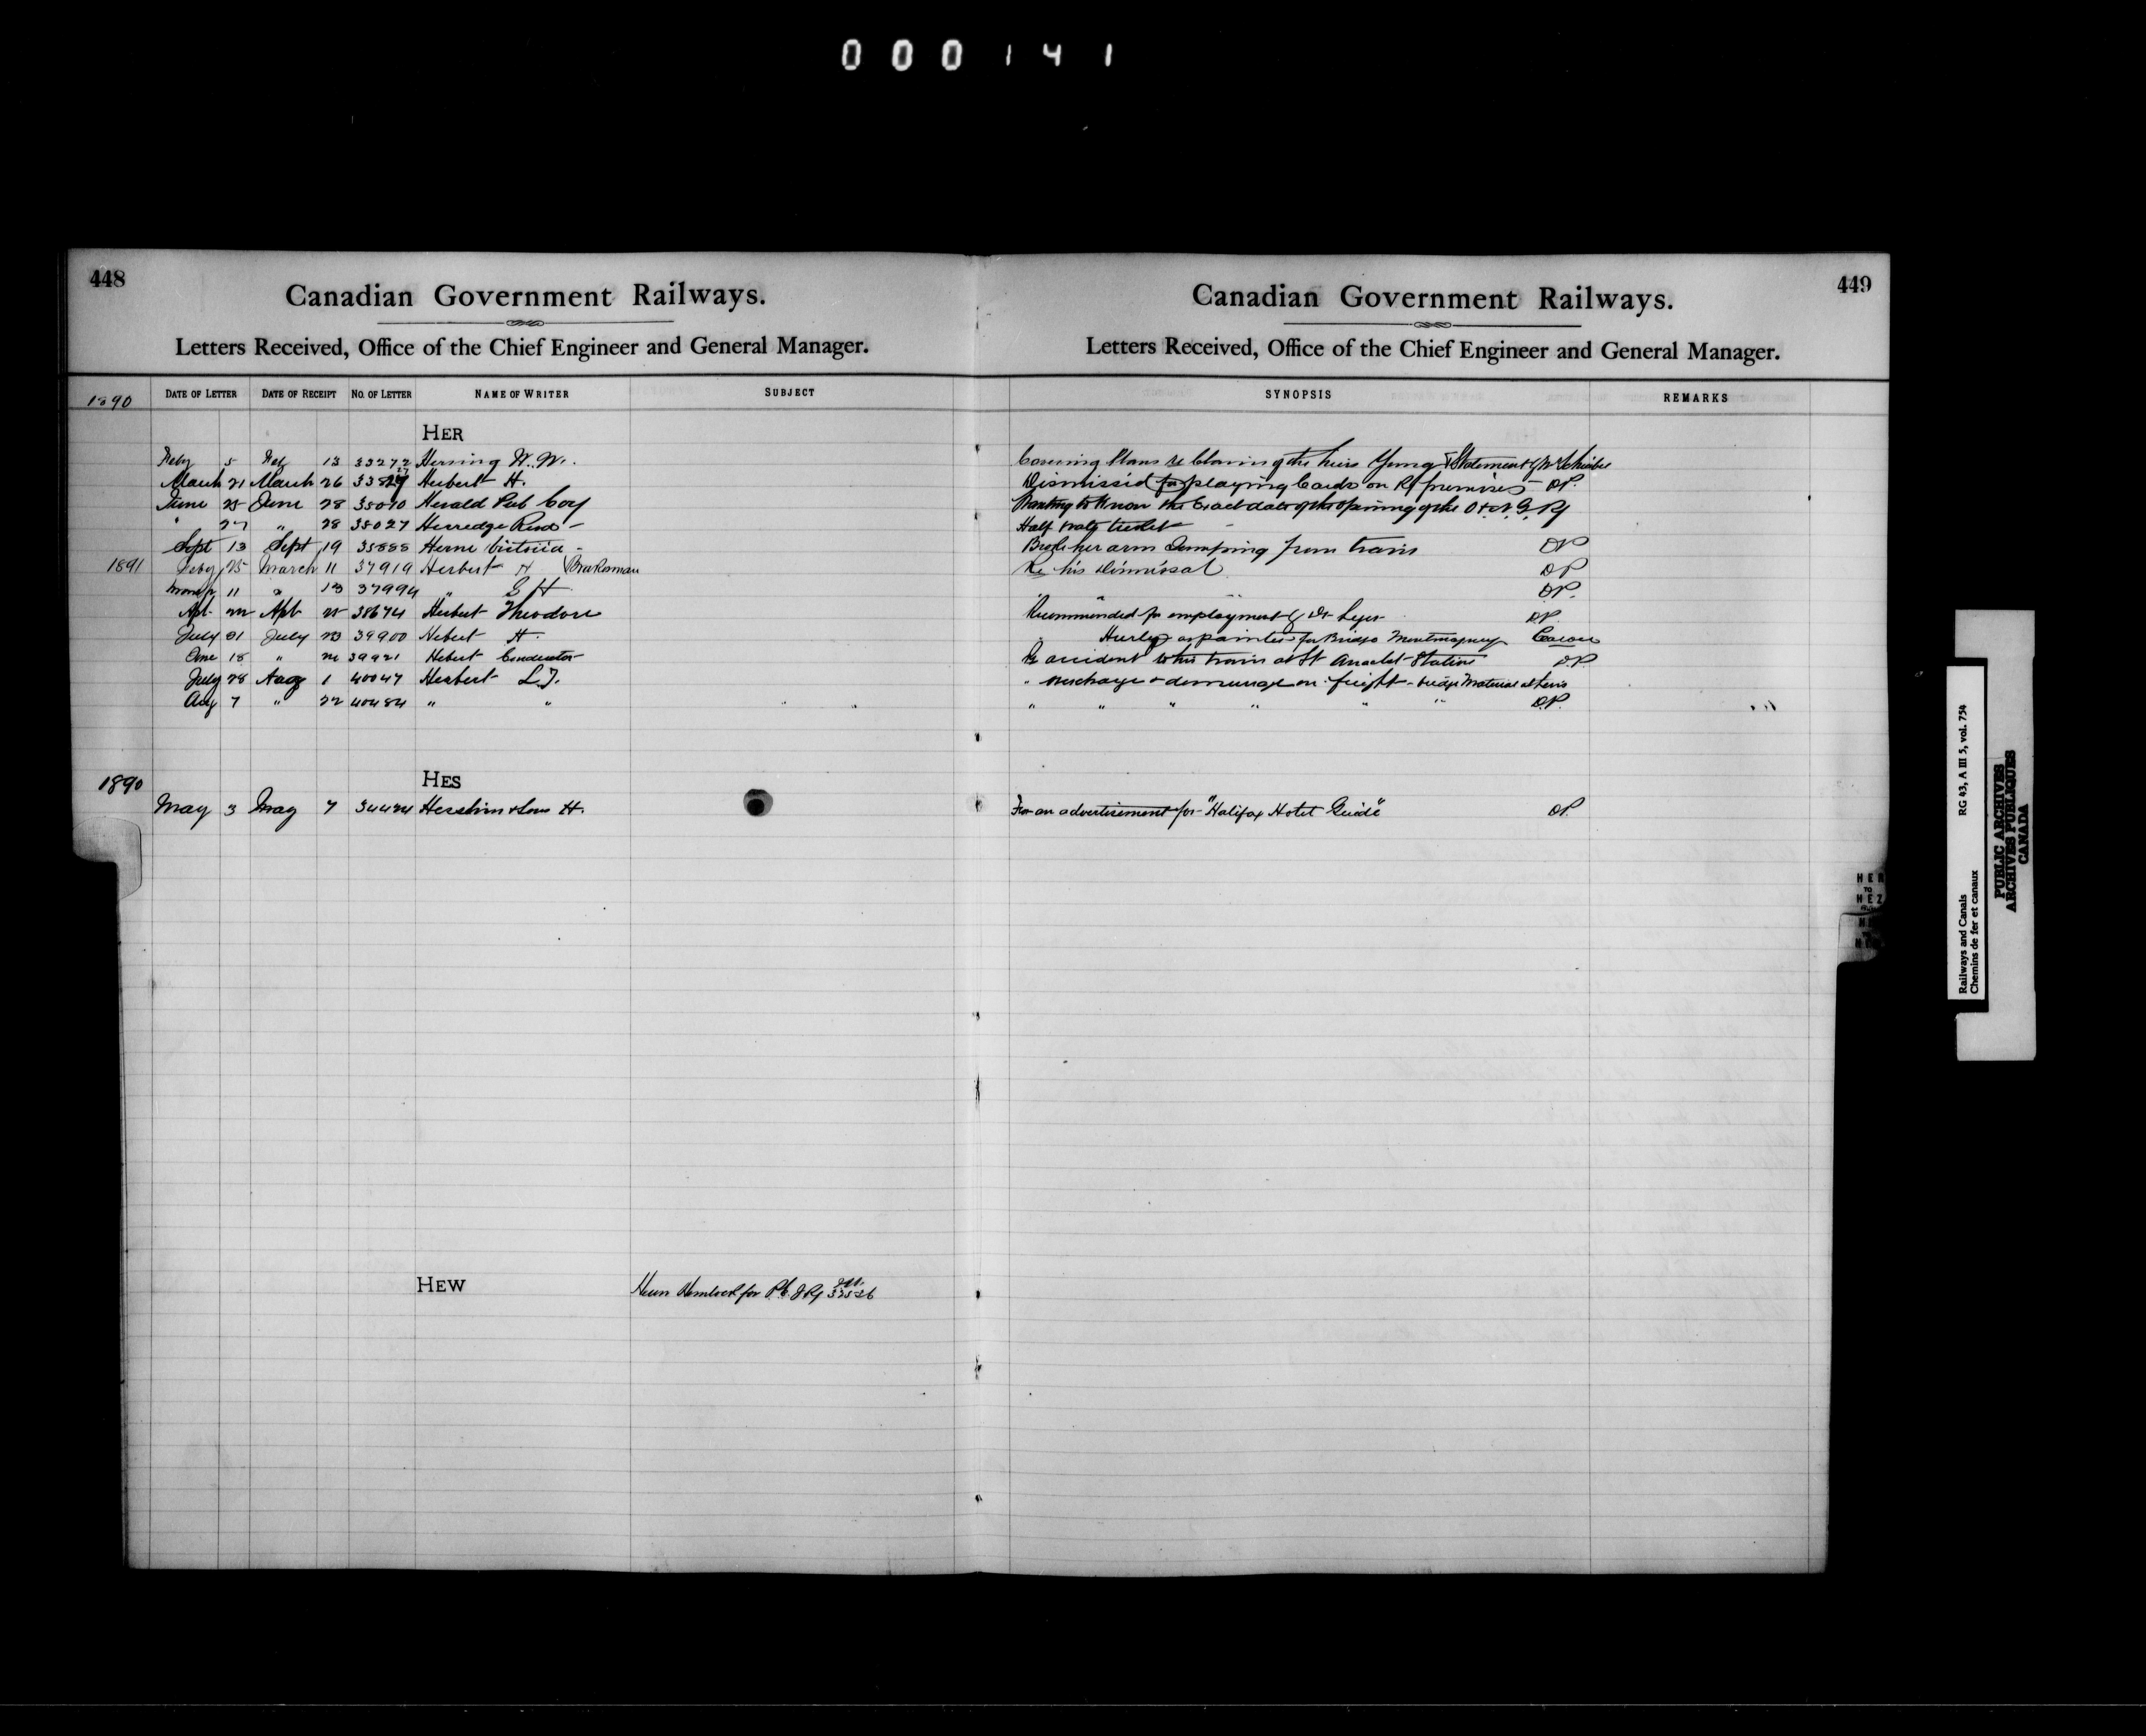 000141
448
Canadian Government Railways.
Letters Received, Office of the Chief Engineer and General Manager.
1890 DATE OF LETTER DATE OF RECEIPT NO. OF LETTER NAME OF WRITER SUBJECT
HER
Feby 5 Feb 13 33272 Herring W. W.
March 21 March 26 Herbert H.
June 25 June 28 35010 Herald Pub Coy
" 27 " 28 35027 Herredge Revd -
Sept 13 Sept 19 35888 Herne Victoria -
1891 Feby 25 March 11 37919 Herbert H Brakesman
March 11 " 13 37994 " G H
Apl Apl 38674 Herbert Theodore
July 21 July 23 39900 Hebert H.
June 18 " 39921 Hebert Conductor
July 28 Aug 1 40047 Herbert L J.
Aug 7 " 22 40484 " "
1890
HES
May 3 May 7 34424 H.
HEW
Hewn Hemlock for P.E.I Ry 33526
449
Canadian Government Railways.
Letters Received, Office of the Chief Engineer and General Manager.
SYNOPSIS REMARKS
Covering Plans re Claim of the heirs Young & Statement of Mr Schreiber
Dismissed for playing Cards on Ry premises - DP.
Wanting to Know the Exact date of the opening of the O & N. G. Ry
Half rate ticket -
Broke her arm Jumping from train DP
Re his dismissal DP
" " " DP.
Recommended for employment by Dr DP.
" Hurley as painter for Bridge Montmagny
Re accident to his train at St Anaclet Station DP.
" overcharge & demurrage on freight - bridge Material at
" " " " " " D.P.
For an advertisement for "Halifax Hotel Guide" DP.
HER
TO
HEZ
RG 43, A III 5, vol. 754
Railways and Canals
Chemins de fer et canaux
PUBLIC ARCHIVES
ARCHIVES PUBLIQUES
CANADA